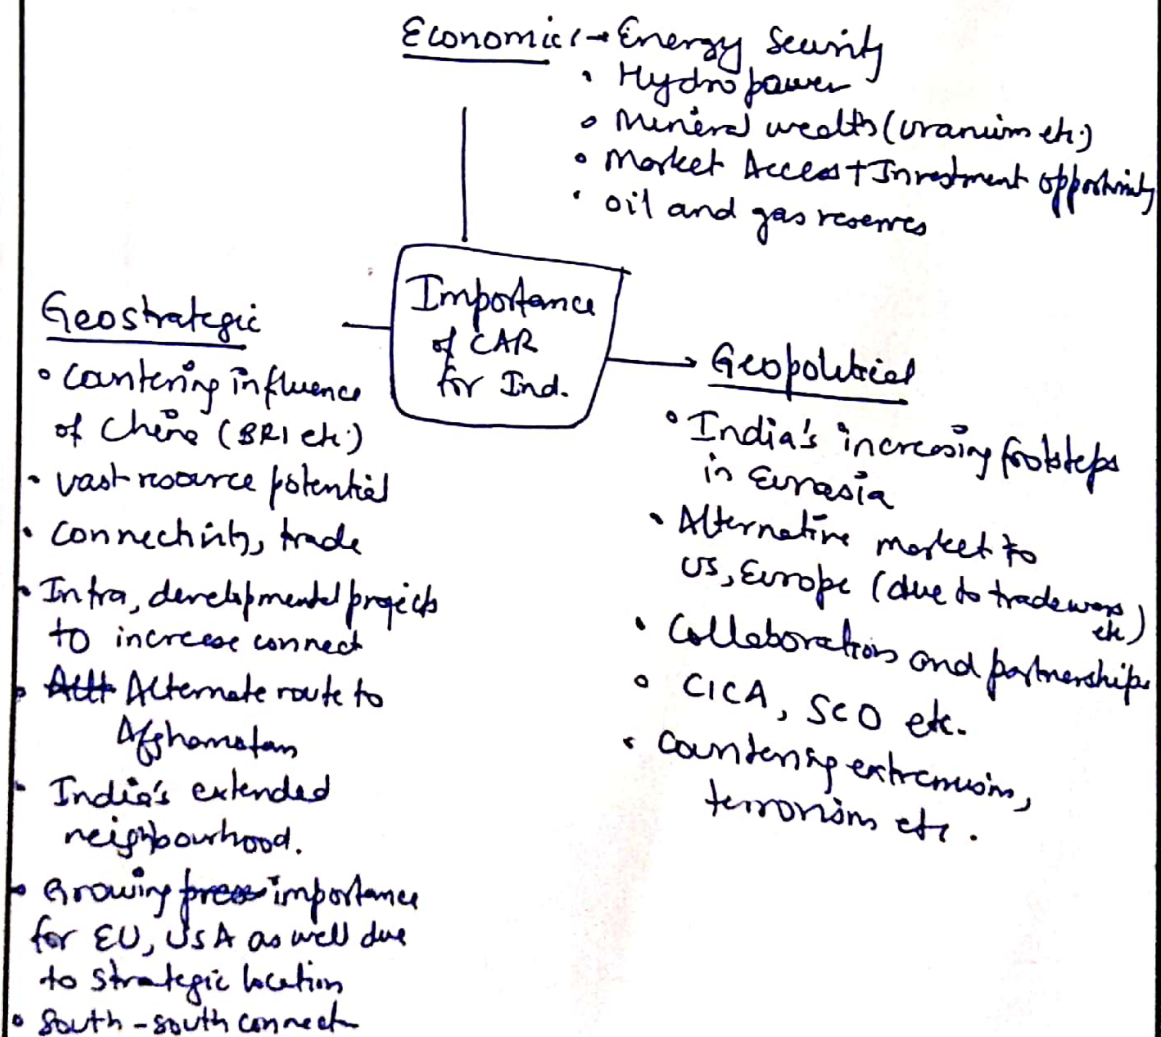 Economic :→ Energy Security
• Hydropower
• Mineral wealth (Uranium etc.)
• Market Access + Investment opportunity
• oil and gas reserves
Importance
of CAR
for Ind.
Geostrategic
• Countering influence
of China (BRI etc.)
• vast resource potential
• Connectivity, trade
• Infra, developmental projects
to increase connect
• Alternate route to
Afghanistan
• India's extended
neighbourhood.
• Growing importance
for EU, USA as well due
to strategic location
• South-South connect
Geopolitical
• India's increasing footsteps
in Eurasia
• Alternative market to
US, Europe (due to tradewars
etc)
• Collaborations and partnerships
• CICA, SCO etc.
• Countering extremism,
terrorism etc.